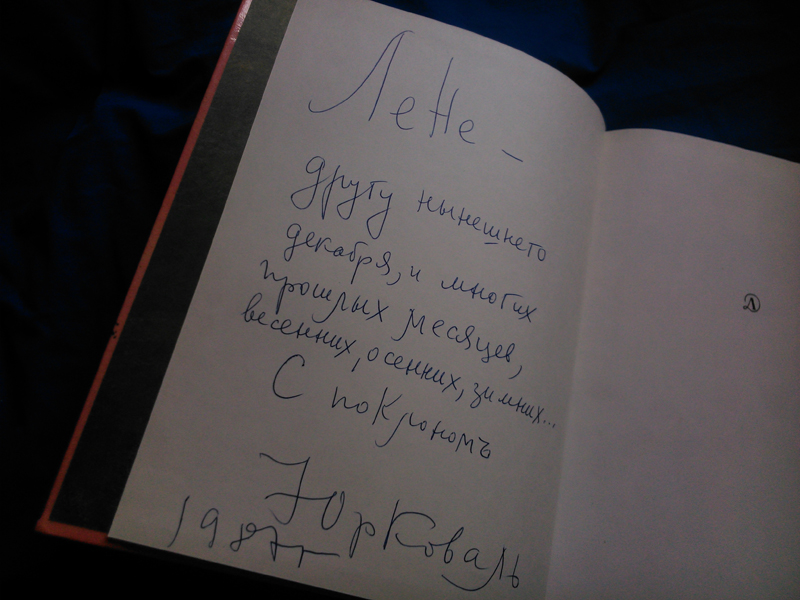 Лене –
другу нынешнего
декабря, и многих
прошлых месяцев,
весенних, осенних, зимних...
С поклономъ
ЮрКоваль
1987г
Д